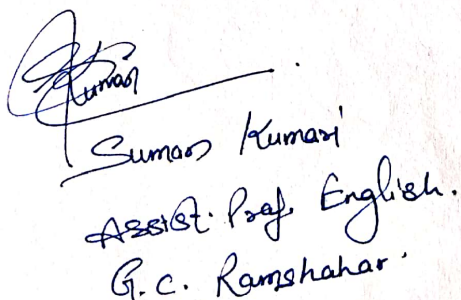 Kumari
Suman Kumari
Assist. Prof. English.
G.C. Ramshahar.